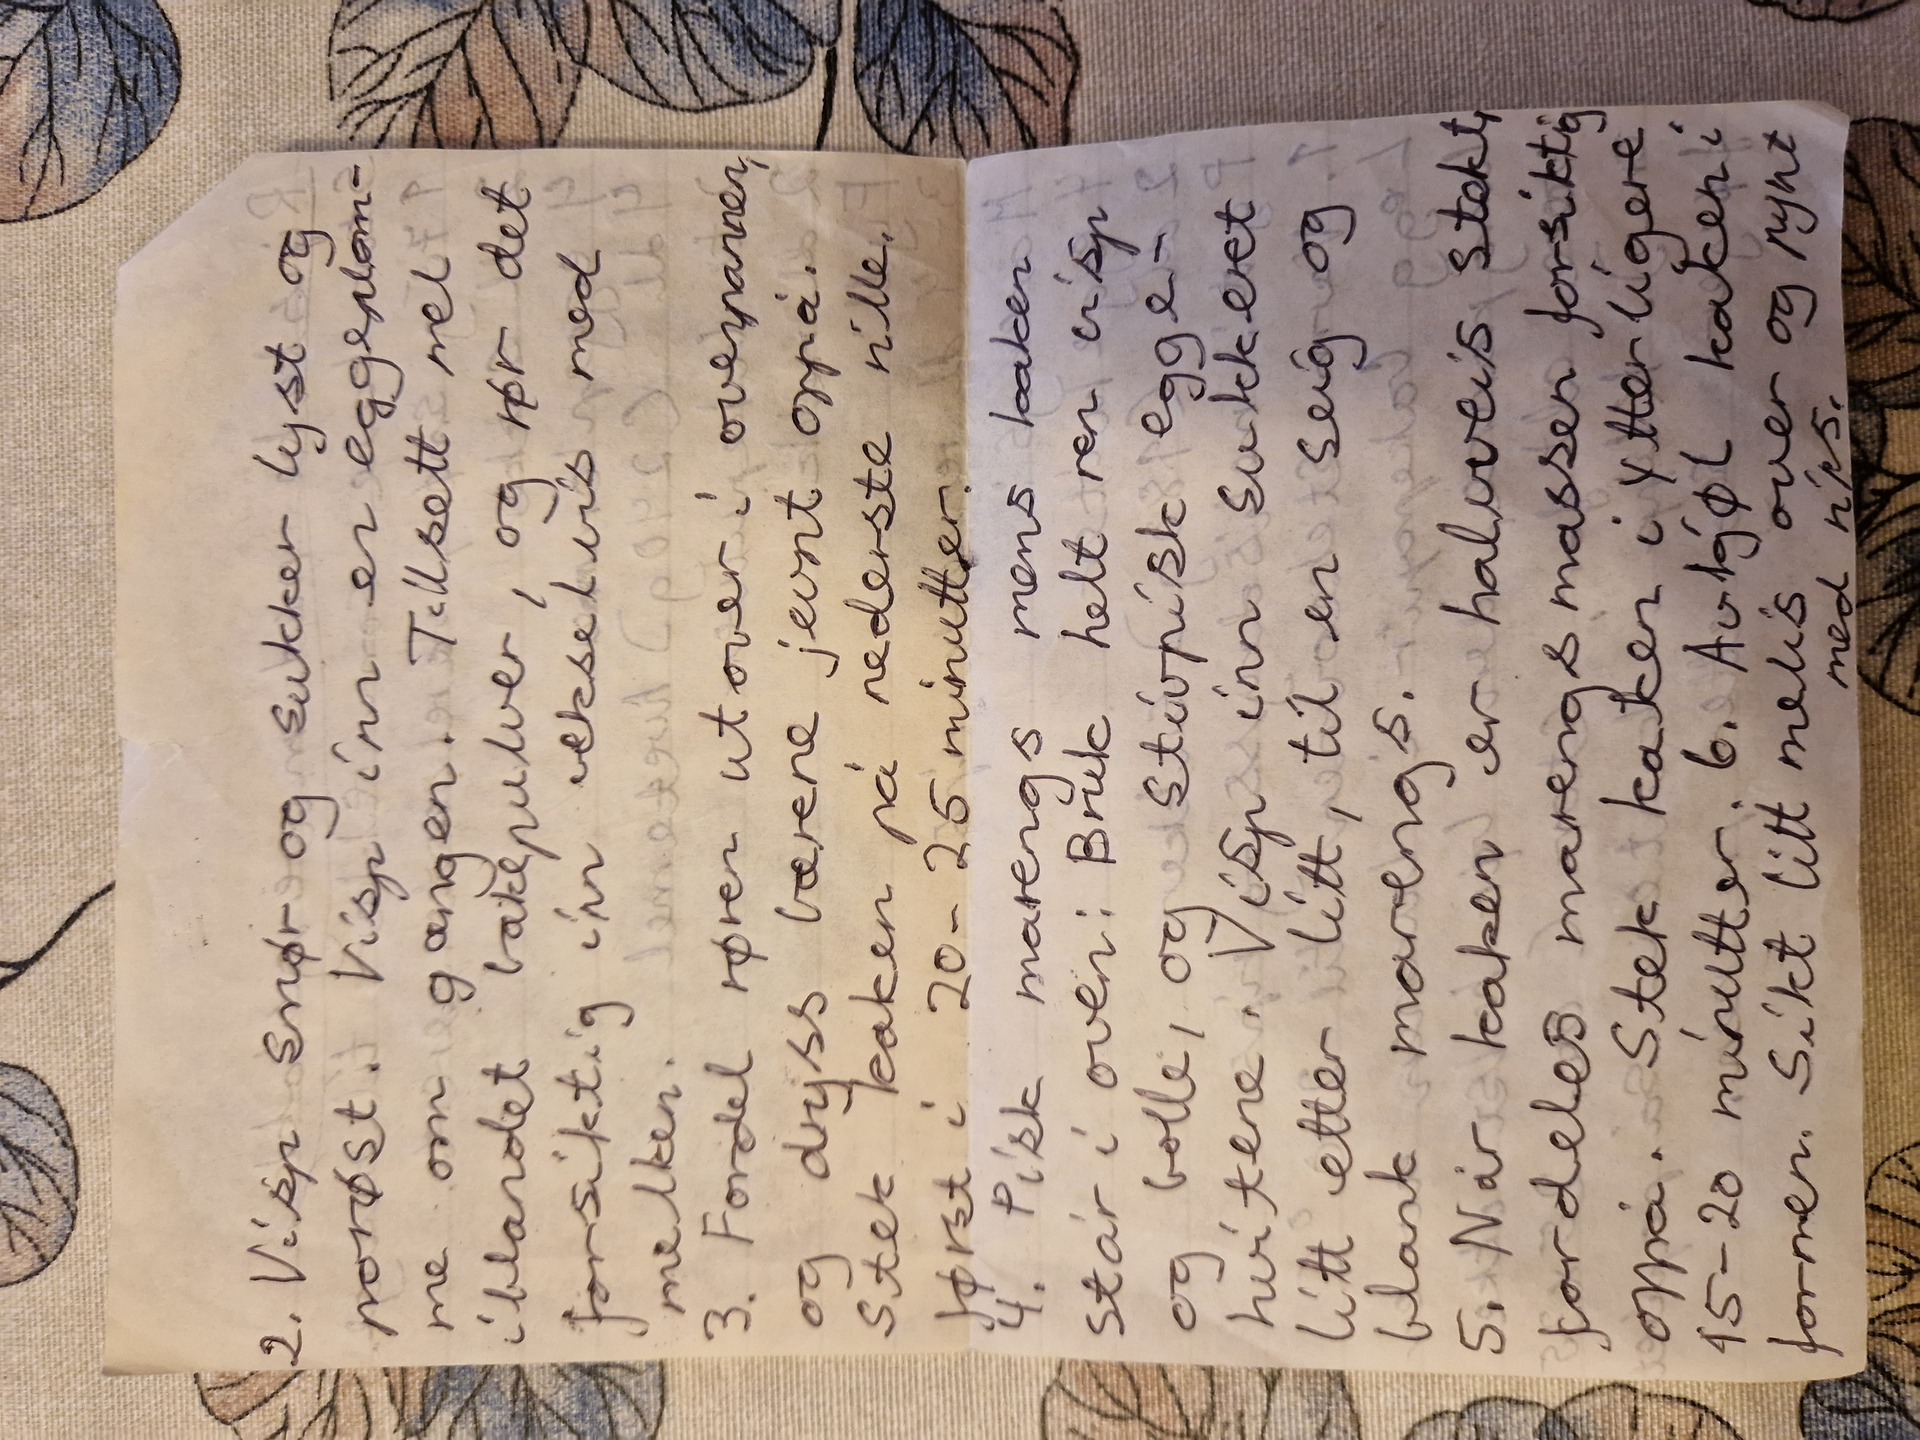 2. Visp smør og sukker lyst og
porøst. Visp inn en eggeplom-
me om gangen. Tilsett mel
iblandet bakepulver, og rør det
forsiktig inn vekselvis med
melken.
3. Fordel røren utover i ovenpannen,
og dryss bærene jevnt oppå.
Stek kaken på nederste rille,
først i 20-25 minutter.
4. Pisk marengs mens kaken
står i oven: Bruk helt ren visp
og bolle, og stivpisk egge-
hvitene. Visp inn sukkeret
litt etter litt, til en seig og
blank marengs.
5. Når kaken er halvveis stekt,
fordeles marengsmassen forsiktig
oppå. Stek kaken i ytterligere
15-20 minutter. 6. Avkjøl kaken i
formen. Sikt litt melis over og pynt
med rips.